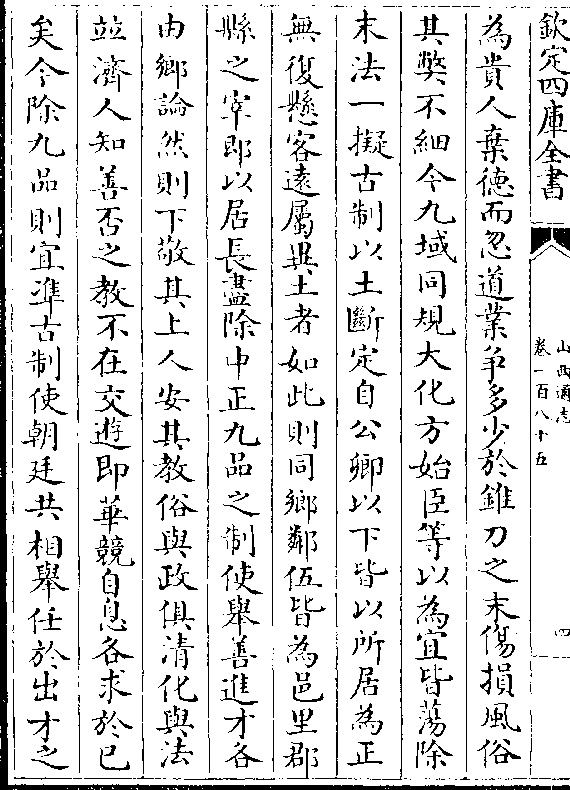 欽定四庫全書
山西通志
卷一百八十五
四
為貴人棄德而忽道業爭多少於錐刀之末傷損風俗
其獘不細今九域同規大化方始臣等以為宜皆蕩除
末法一擬古制以土斷定自公卿以下皆以所居為正
無復懸客遠屬異土者如此則同鄉鄰伍皆為邑里郡
縣之宰即以居長盡除中正九品之制使舉善進才各
由鄉論然則下敬其上人安其教俗與政俱清化與法
竝濟人知善否之教不在交遊即華競自息各求於已
矣今除九品則宜準古制使朝廷共相舉任於出才之